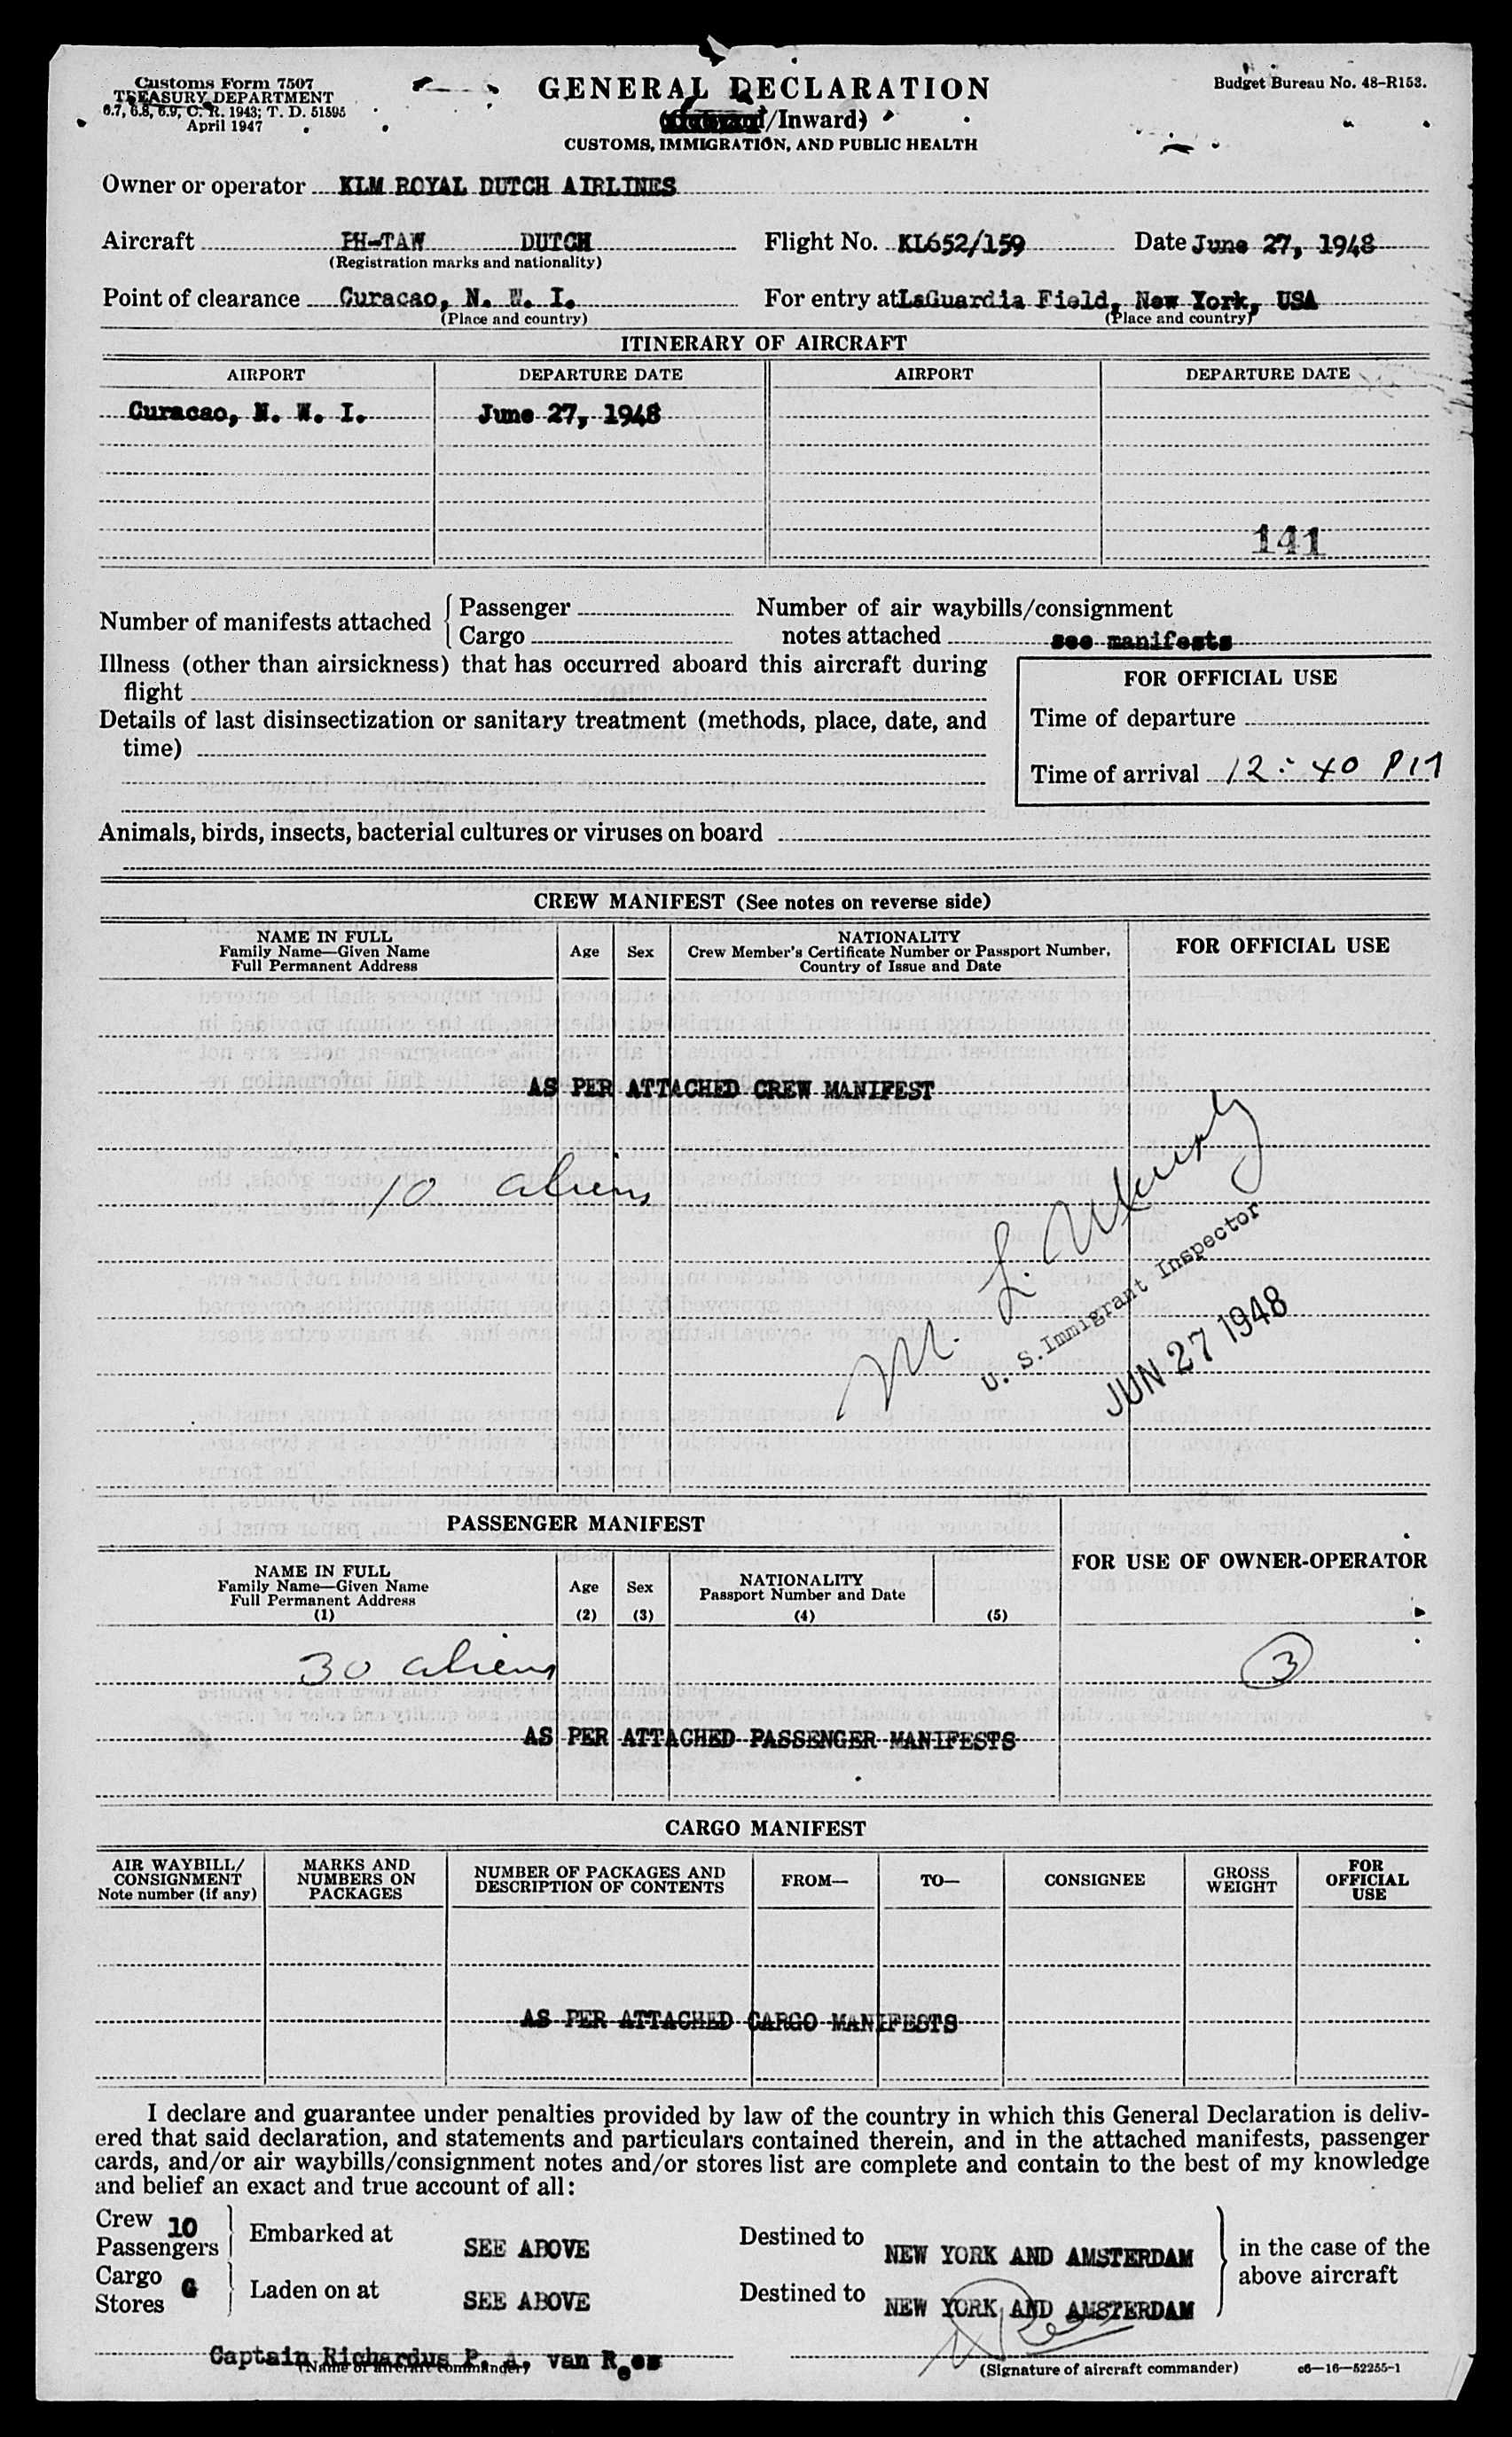 Customs Form 7507
TREASURY DEPARTMENT
6.7, 6.8, 6.9, C. R. 1943; T. D. 51595
April 1947
GENERAL DECLARATION
/Inward)
CUSTOMS, IMMIGRATION, AND PUBLIC HEALTH
Budget Bureau No. 48-R153.
Owner or operator KLM ROYAL DUTCH AIRLINES
Aircraft PH-TAW DUTCH Flight No. KL652/159 Date June 27, 1948
(Registration marks and nationality)
Point of clearance Curacao, N. W. I. For entry at LaGuardia Field, New York, USA
(Place and country) (Place and country)
ITINERARY OF AIRCRAFT
AIRPORT DEPARTURE DATE AIRPORT DEPARTURE DATE
Curacao, N. W. I. June 27, 1948
141
Number of manifests attached { Passenger Number of air waybills/consignment
Cargo notes attached see manifests
Illness (other than airsickness) that has occurred aboard this aircraft during
flight
Details of last disinsectization or sanitary treatment (methods, place, date, and
time)
FOR OFFICIAL USE
Time of departure
Time of arrival 12:40 PM
Animals, birds, insects, bacterial cultures or viruses on board
CREW MANIFEST (See notes on reverse side)
NAME IN FULL
Family Name—Given Name
Full Permanent Address
Age
Sex
NATIONALITY
Crew Member's Certificate Number or Passport Number,
Country of Issue and Date
FOR OFFICIAL USE
AS PER ATTACHED CREW MANIFEST
10 aliens
M. L.
U. S. Immigrant Inspector
JUN 27 1948
PASSENGER MANIFEST
NAME IN FULL
Family Name—Given Name
Full Permanent Address
(1)
Age
(2)
Sex
(3)
NATIONALITY
Passport Number and Date
(4)
(5)
FOR USE OF OWNER-OPERATOR
30 aliens
3
AS PER ATTACHED PASSENGER MANIFESTS
CARGO MANIFEST
AIR WAYBILL/
CONSIGNMENT
Note number (if any)
MARKS AND
NUMBERS ON
PACKAGES
NUMBER OF PACKAGES AND
DESCRIPTION OF CONTENTS
FROM—
TO—
CONSIGNEE
GROSS
WEIGHT
FOR
OFFICIAL
USE
AS PER ATTACHED CARGO MANIFESTS
I declare and guarantee under penalties provided by law of the country in which this General Declaration is deliv-
ered that said declaration, and statements and particulars contained therein, and in the attached manifests, passenger
cards, and/or air waybills/consignment notes and/or stores list are complete and contain to the best of my knowledge
and belief an exact and true account of all:
Crew 10
Passengers
Embarked at SEE ABOVE Destined to NEW YORK AND AMSTERDAM
Cargo G
Stores
Laden on at SEE ABOVE Destined to NEW YORK AND AMSTERDAM
in the case of the
above aircraft
Captain Richardus P. A. van Rees
(Name of aircraft commander)
(Signature of aircraft commander)
c6—16—52255-1